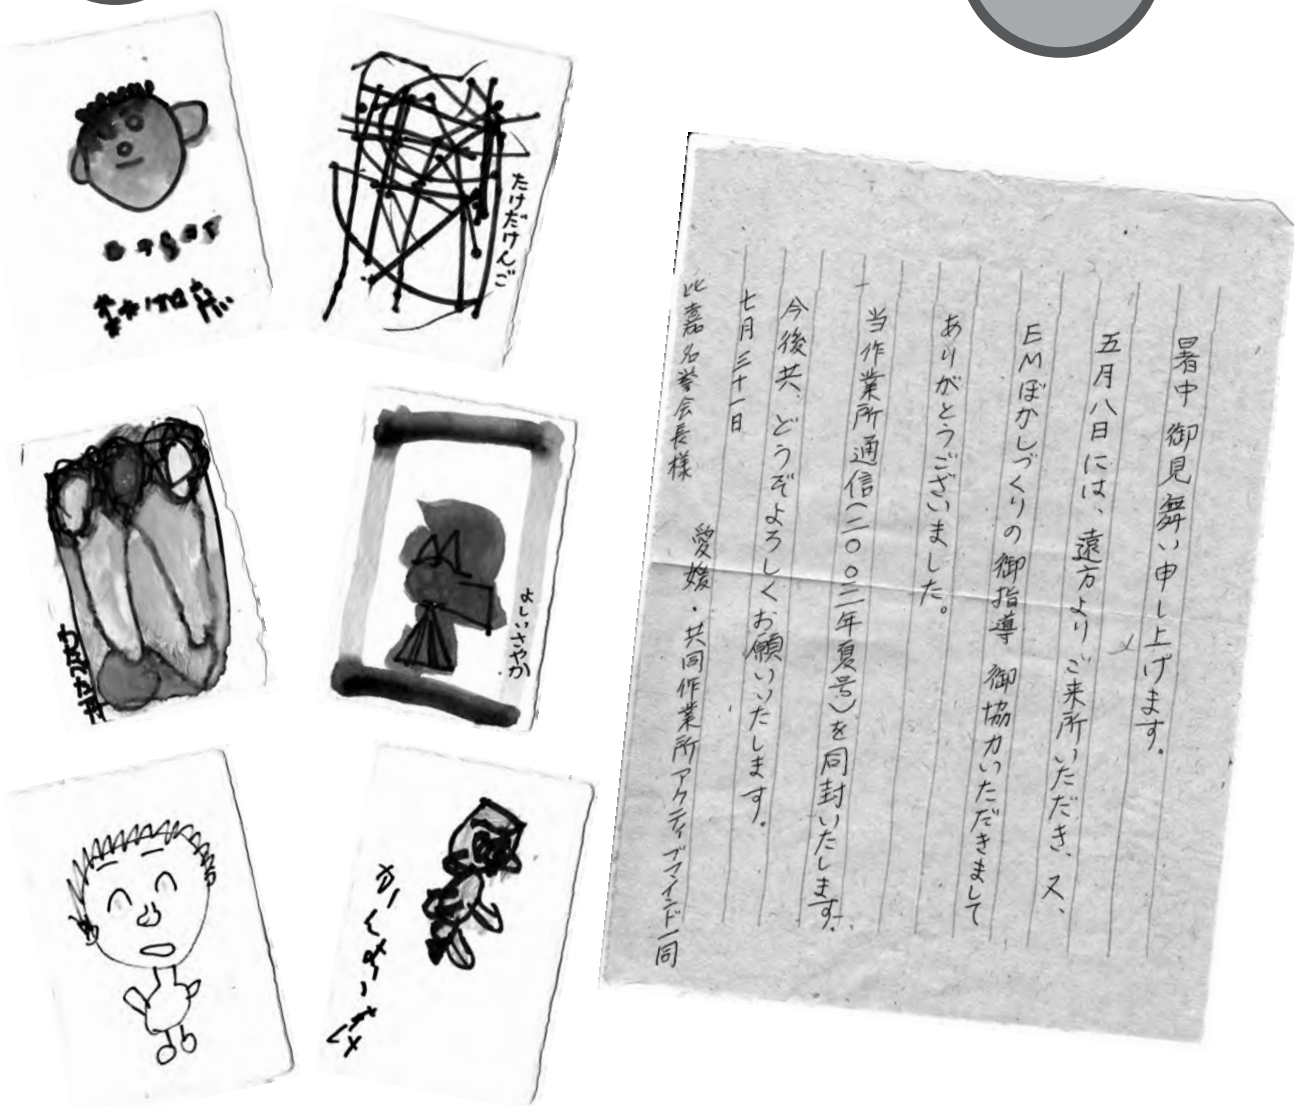 たけだけんご
よしいさやか
暑中御見舞い申し上げます。
五月八日には、遠方よりご来所いただき、又、
EMぼかしづくりの御指導 御協力いただきまして
ありがとうございました。
当作業所通信(二〇〇三年夏号)を同封いたします。
今後共、どうぞよろしくお願いいたします。
七月三十一日
比嘉名誉会長様
愛媛・共同作業所アクティブマインド一同